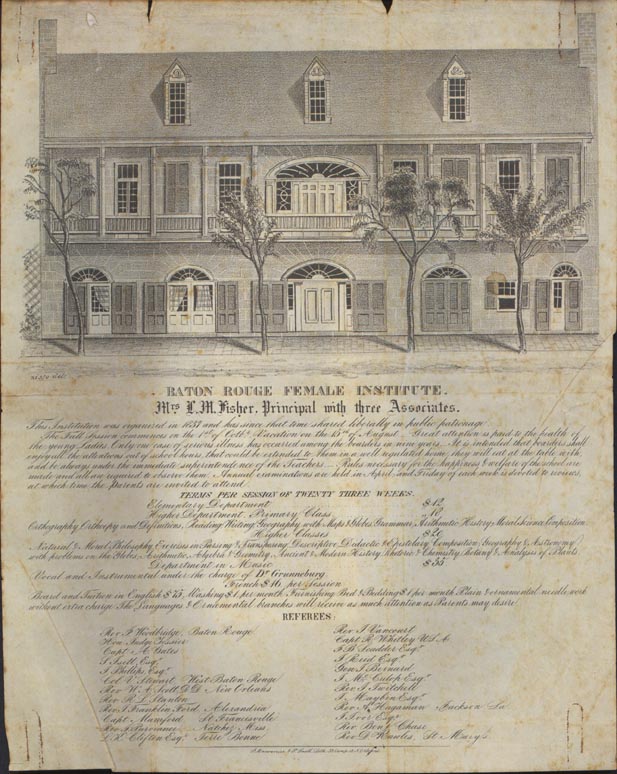 BATON ROUGE FEMALE INSTITUTE.
Mrs L. M. Fisher, Principal with three Associates.
This Institution was organized in 1837 and has since that time shared liberally in public patronage.
The Fall Session commences on the 1st of Octb. Vacation on the 15th of August. Great attention is paid to the health of
the young Ladies. Only one case of serious illness has occurred among the boarders in years. It is intended that boarders shall
enjoy all the attentions out of school hours, that could be extended to them in a well regulated home; they will eat at the table with,
and be always under the immediate superintendence of the Teachers. Rules necessary for the happiness & welfare of the school are
made and all are required to observe them. Annual examinations are held in April, and Friday of each week is devoted to reviews,
at which time the Parents are invited to attend.
TERMS PER SESSION OF TWENTY THREE WEEKS.
Elementary Department $12
Higher Department, Primary Class
Orthography, Orthoepy and Definitions, Reading, Writing, Geography with Maps & Globes, Grammar, Arithmetic, History, Moral Science, Composition
Higher Classes
Natural & Moral Philosophy, Exercises in Parsing & Transposing, Descriptive, Didactic & Epistolary Composition, Geography & Astronomy
with problems on the Globes, Arithmetic, Algebra & Geometry, Ancient & Modern History, Rhetoric & Chemistry, Botany & Analysis of Plants
Department in Music
Vocal and Instrumental under the charge of Dr
French $16 per session
Board and Tuition in English $75, Washing $1 per month, Furnishing Bed & Bedding $1 per month. Plain & ornamental needle work
without extra charge. The Languages & Ornamental branches will receive as much attention as Parents may desire.
REFEREES:
Rev J Woodbridge, Baton Rouge
Hon Judge Tessier
Capt A. Bates
Esqr
J. Philips, Esqr
Col E. Stewart, West Baton Rouge
Rev W. A. Scott, New Orleans
Rev R. L. Stanton
Rev J Franklin Ford, Alexandria
Capt Mumford, St Francisville
Rev Natchez Miss
Esqr Terre Bonne
Rev J.
Capt R. Whitley U.S.A
Esqr
J. Reed Esqr
Gen J Bernard
Esqr
Rev J Twitchell
J. Esqr
Rev A. Hagaman Jackson La
Esqr
Rev Benj. Chase
Rev D. St Mary's